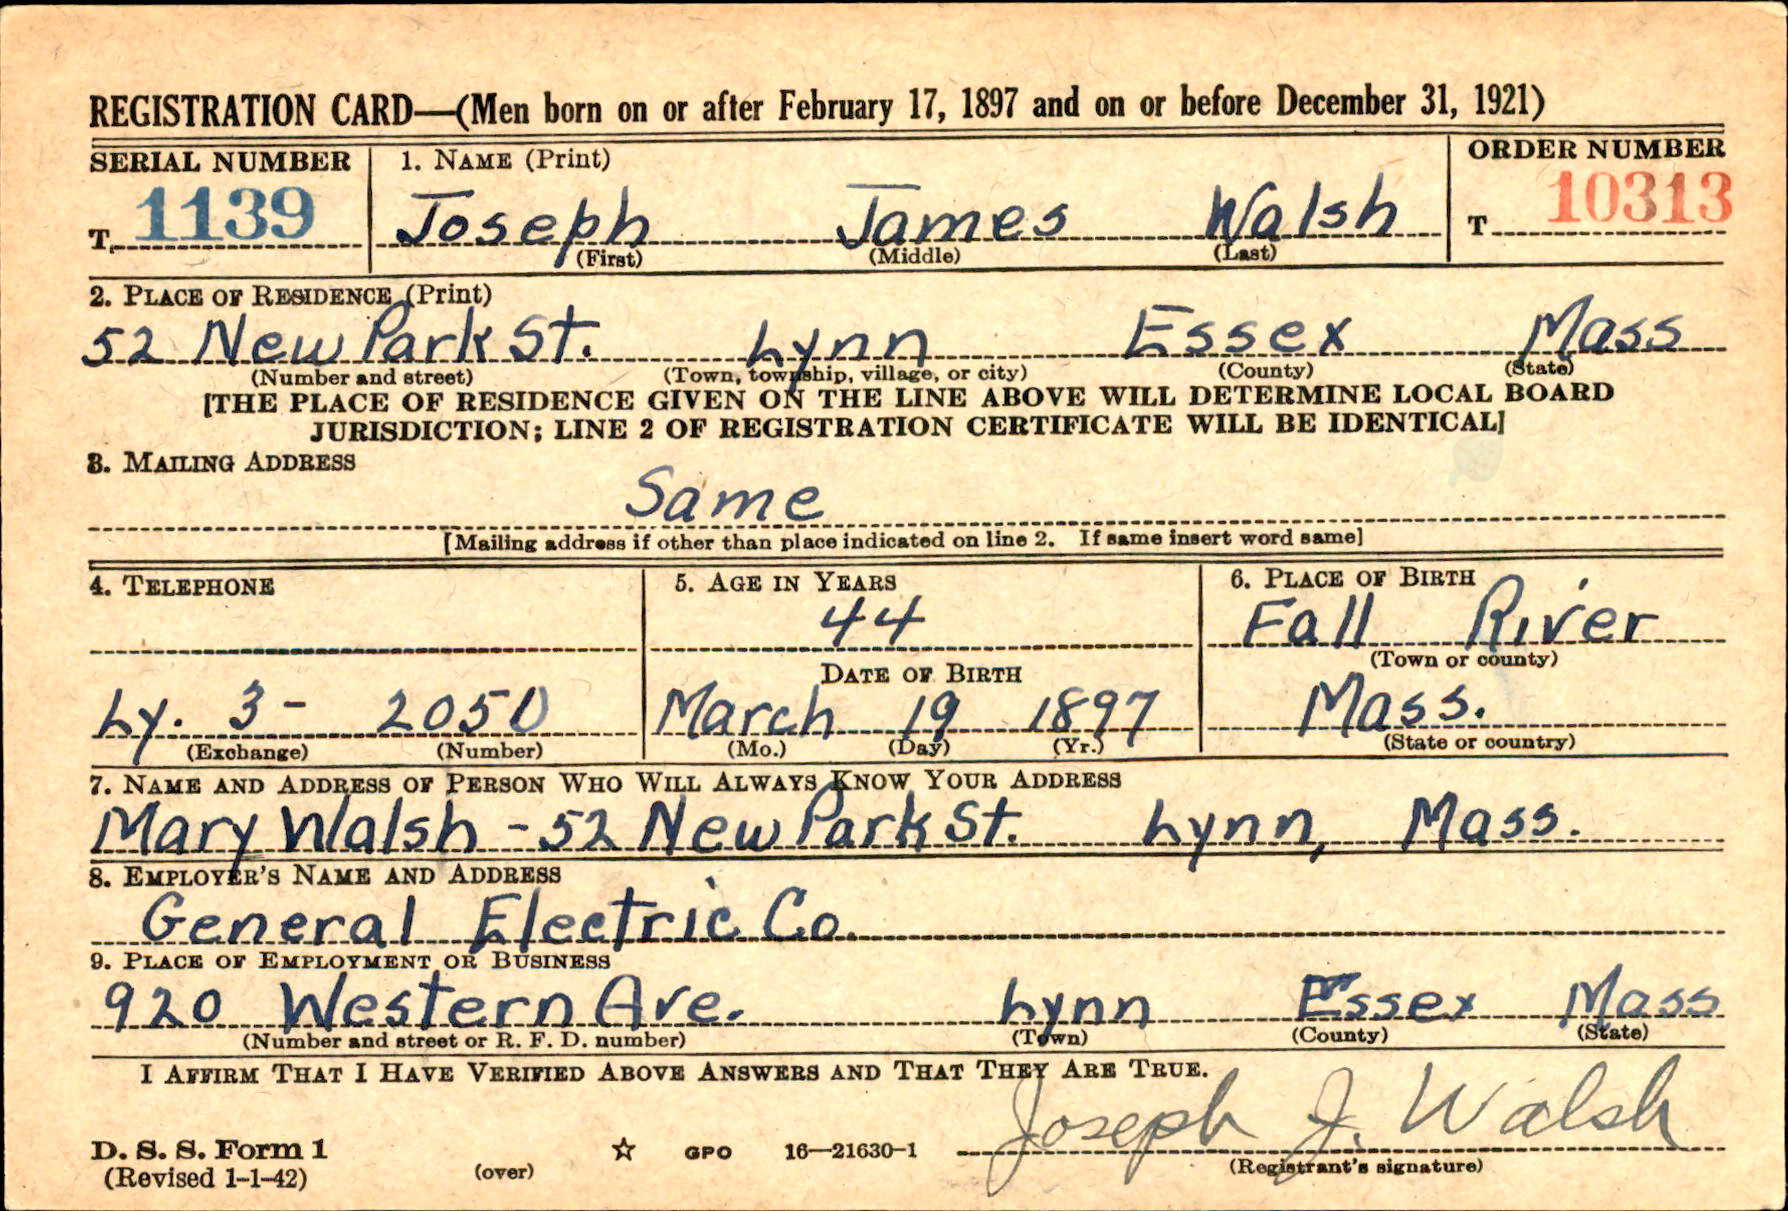 REGISTRATION CARD—(Men born on or after February 17, 1897 and on or before December 31, 1921)
SERIAL NUMBER 1. NAME (Print) ORDER NUMBER
T 1139 Joseph James Walsh T 10313
(First) (Middle) (Last)
2. PLACE OF RESIDENCE (Print)
52 New Park St. Lynn Essex Mass
(Number and street) (Town, township, village, or city) (County) (State)
[THE PLACE OF RESIDENCE GIVEN ON THE LINE ABOVE WILL DETERMINE LOCAL BOARD
JURISDICTION; LINE 2 OF REGISTRATION CERTIFICATE WILL BE IDENTICAL]
3. MAILING ADDRESS
Same
[Mailing address if other than place indicated on line 2. If same insert word same]
4. TELEPHONE 5. AGE IN YEARS 6. PLACE OF BIRTH
44 Fall River
DATE OF BIRTH (Town or county)
Ly. 3- 2050 March 19 1897 Mass.
(Exchange) (Number) (Mo.) (Day) (Yr.) (State or country)
7. NAME AND ADDRESS OF PERSON WHO WILL ALWAYS KNOW YOUR ADDRESS
Mary Walsh - 52 New Park St. Lynn, Mass.
8. EMPLOYER'S NAME AND ADDRESS
General Electric Co.
9. PLACE OF EMPLOYMENT OR BUSINESS
920 Western Ave. Lynn Essex Mass
(Number and street or R. F. D. number) (Town) (County) (State)
I AFFIRM THAT I HAVE VERIFIED ABOVE ANSWERS AND THAT THEY ARE TRUE.
Joseph J. Walsh
D. S. S. Form 1 ☆ GPO 16—21630-1
(Revised 1-1-42) (over) (Registrant's signature)